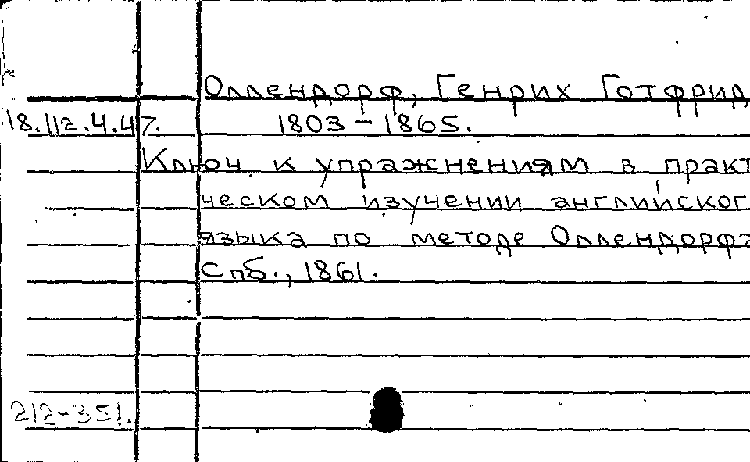 Оллендорф, Генрих Готфрид,
18.112.4.47. 1803-1865.
Ключ к упражнениям в практ
ческом изучении английског
языка по методе Оллендорфа
Спб., 1861.
212-351.